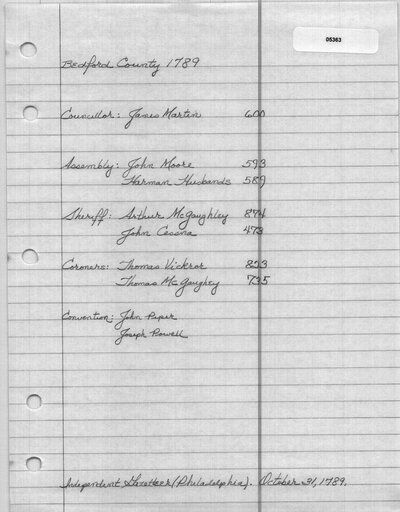 05363
Bedford County 1789
Councillor: James Martin 600
Assembly: John Moore 593
Harman Husbands 589
Sheriff: Arthur McGaughley 874
John Cessna 473
Coroners: Thomas Vickror 823
Thomas McGaughey 735
Convention: John Piper
Joseph Powell
Independent Gazetteer (Philadelphia). October 31, 1789.